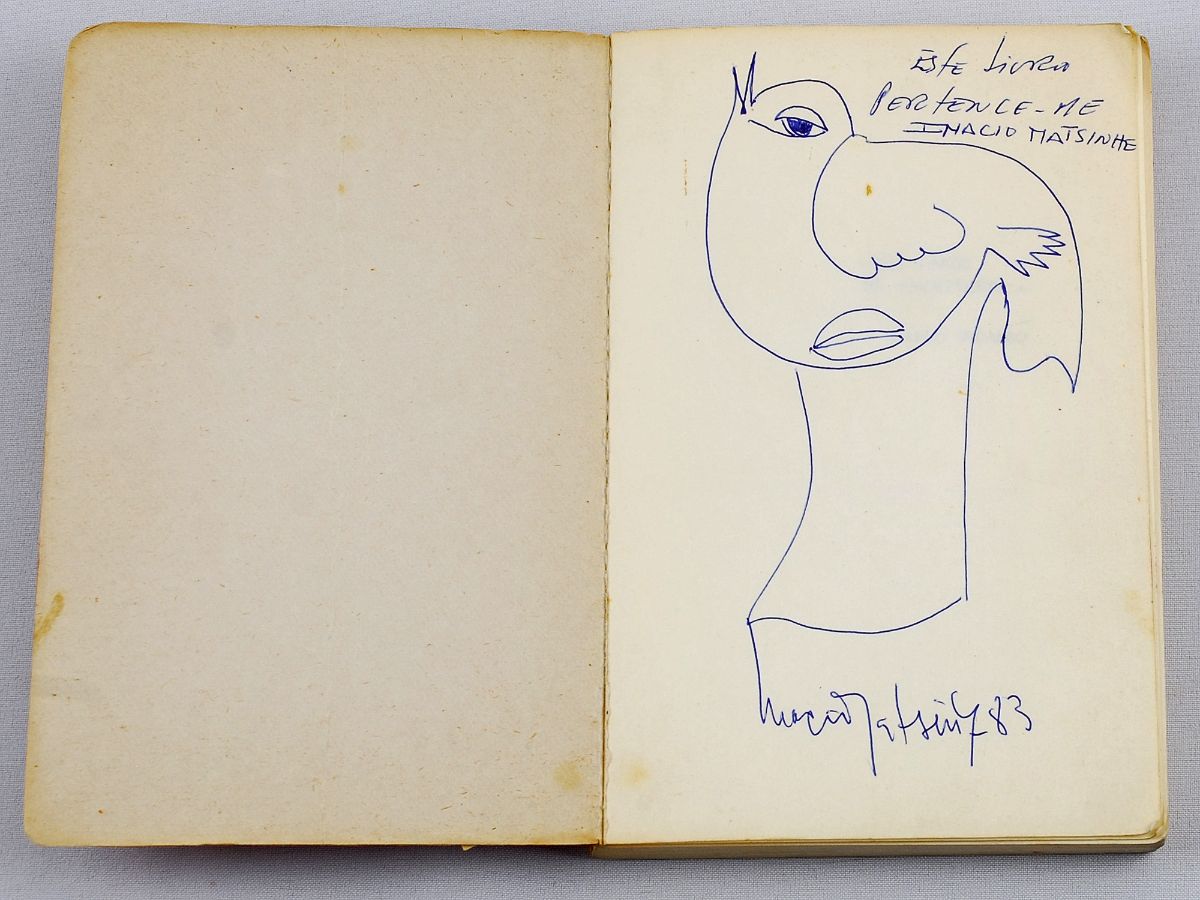 ESTE LIVRO
PERTENCE-ME
INACIO MATSINHE
Inacio Matsinhe 83